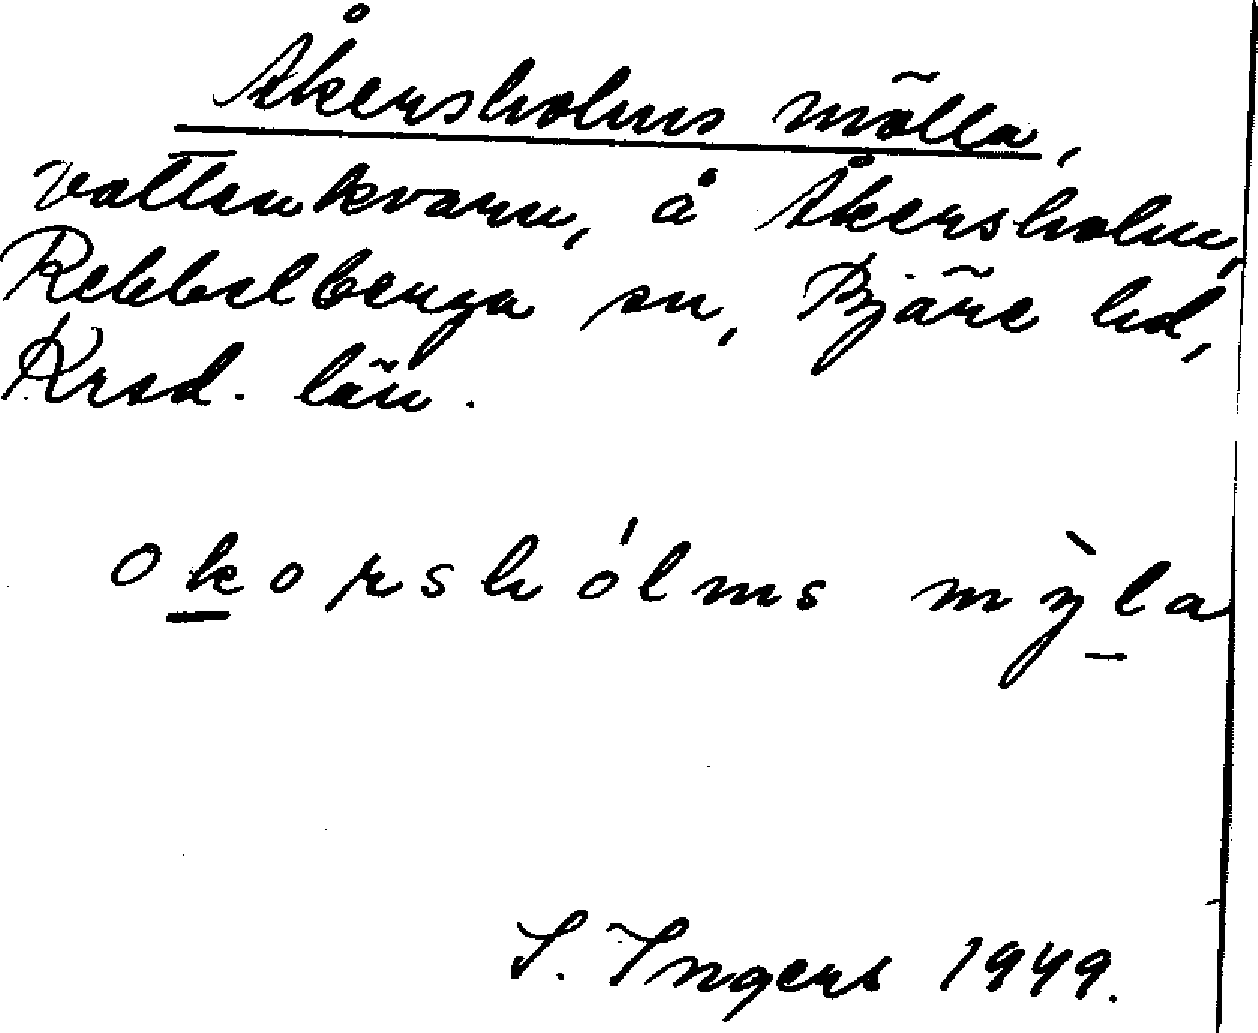 Åkersholms mölla,
vattenkvarn, å Åkersholm,
Rebbelberga sn, Bjäre hd,
Krsd. län.
okorshólms mỳla
I. Ingers 1949.